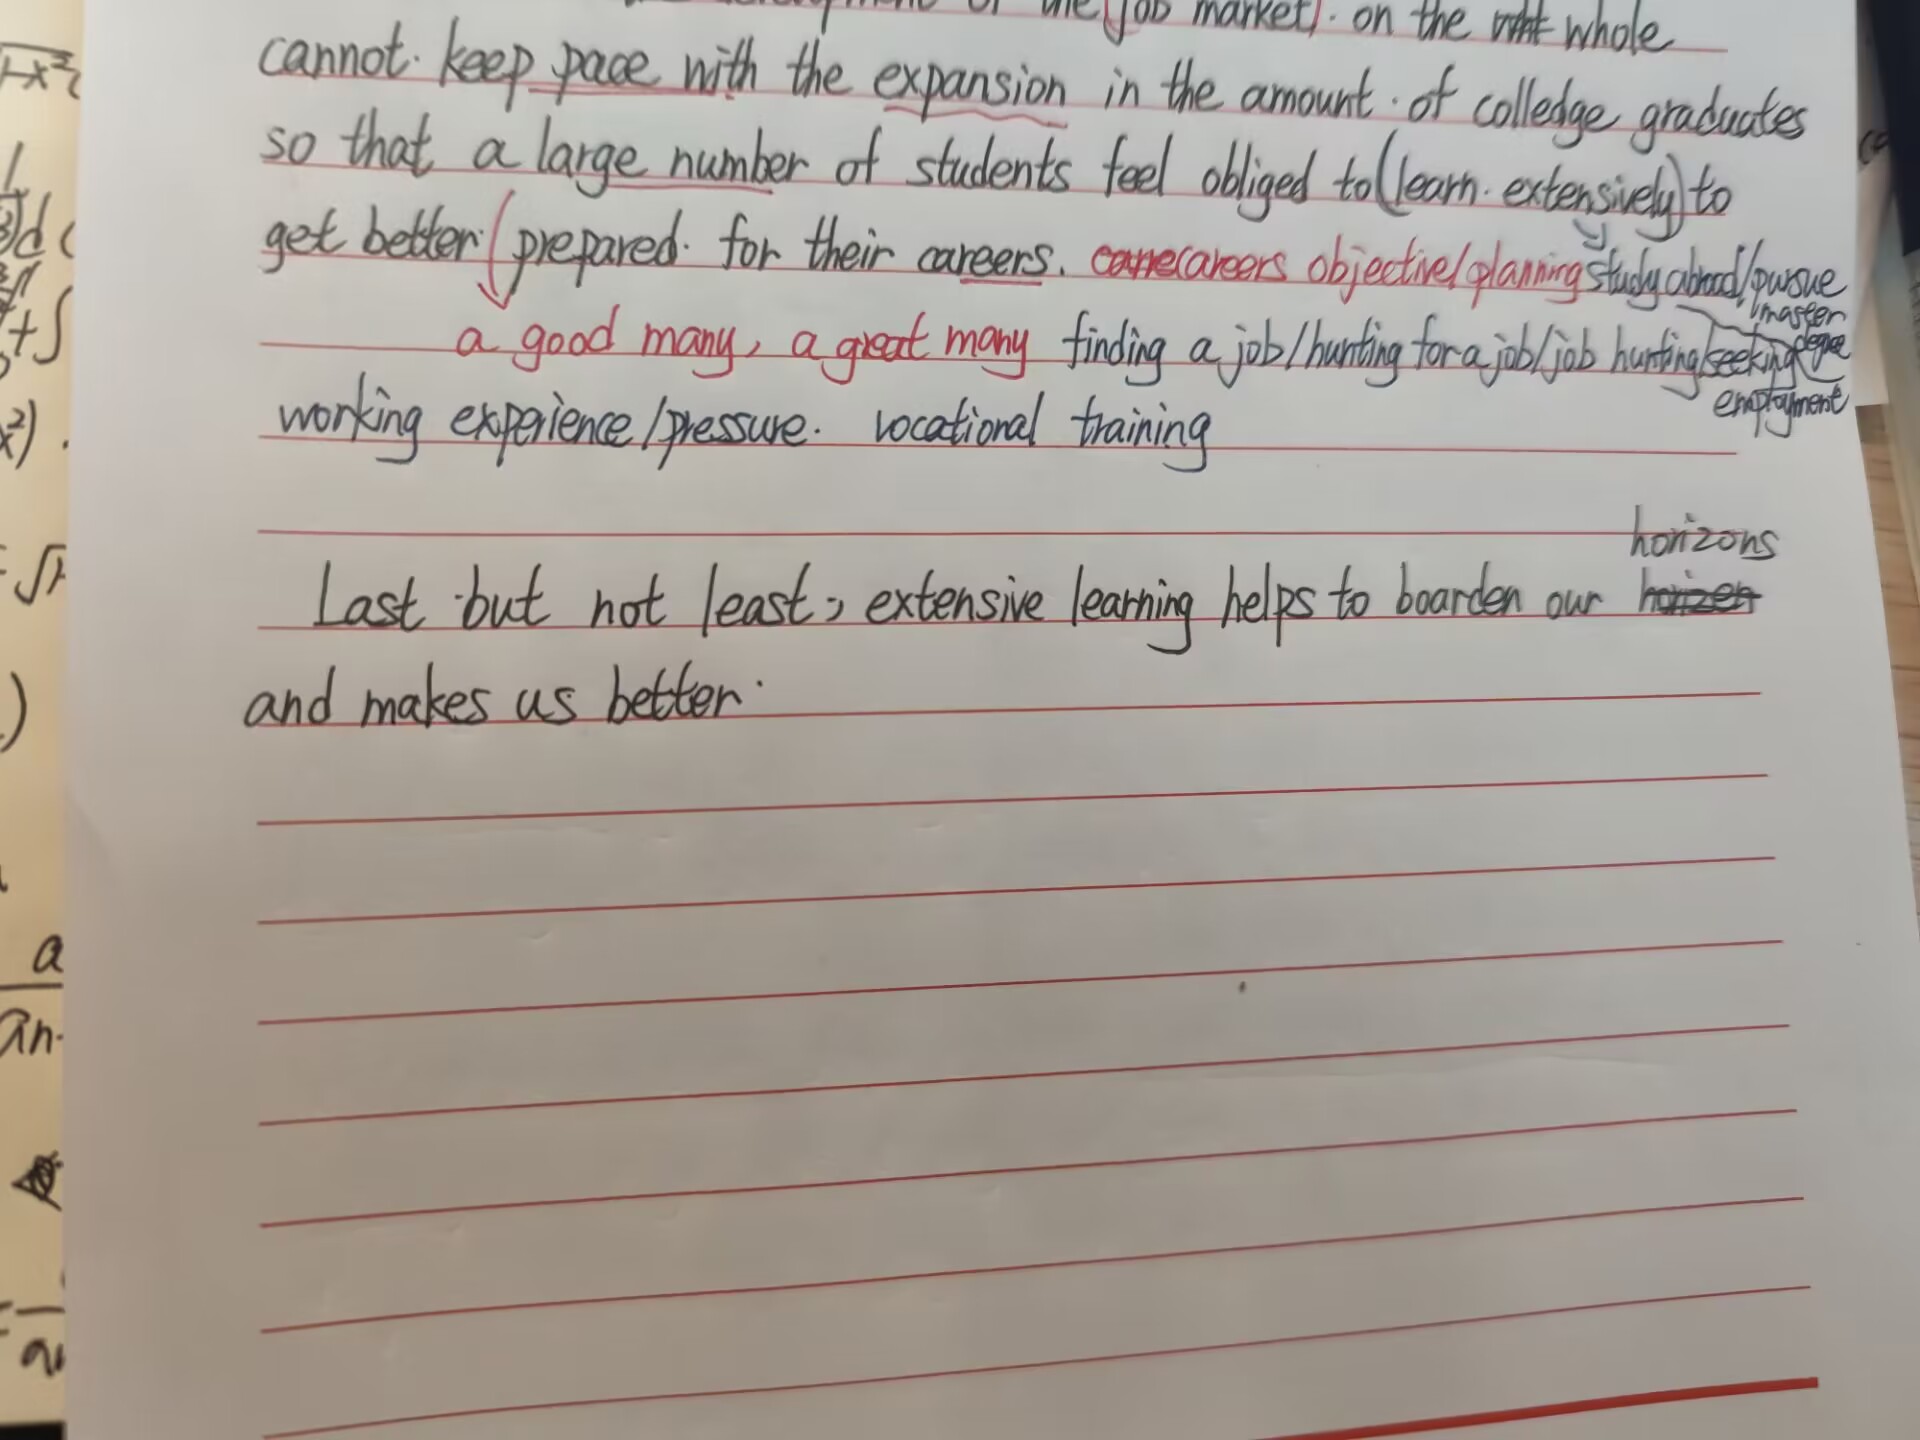 of the (job market). on the whole
cannot. keep pace with the expansion in the amount. of colledge graduates
so that a large number of students feel obliged to (learn. extensively) to
get better. prepared. for their careers. careers objective/planning study abroad/pursue
master
a good many, a great many finding a job/hunting for a job/job hunting/seeking degree
employment
working experience/pressure. vocational training
horizons
Last but not least, extensive learning helps to boarden our horizen
and makes us better.